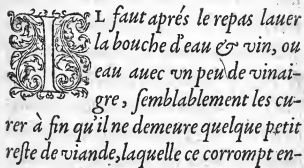 IL faut aprés le repas lauer
la bouche d'eau & vin, ou
eau auec vn peu de vinai-
gre, ſemblablement les cu-
rer à fin qu'il ne demeure quelque petit
reſte de viande, laquelle ce corrompt en-